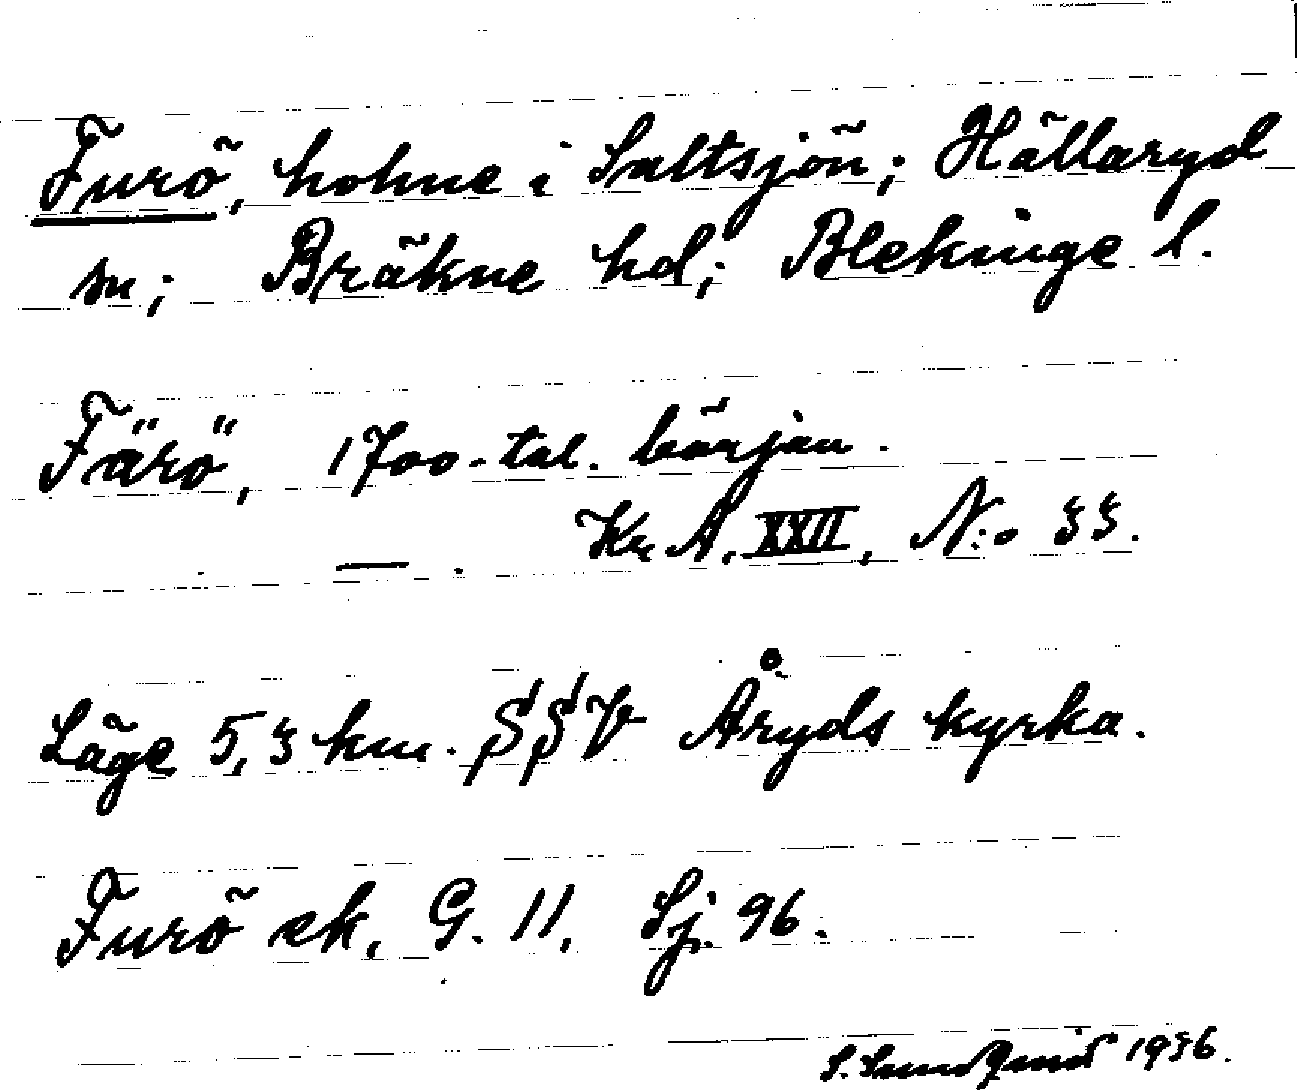 Furö, holme i Saltsjön; Hällaryd
sn; Bräkne hd; Blekinge l.
Färö, 1700-tal. början.
Kr. A. XXII, N:o 33.
— .
Läge 5,3 km. SSV Åryds kyrka.
Furö ek, G. 11, Sj. 96.
S. 1936.